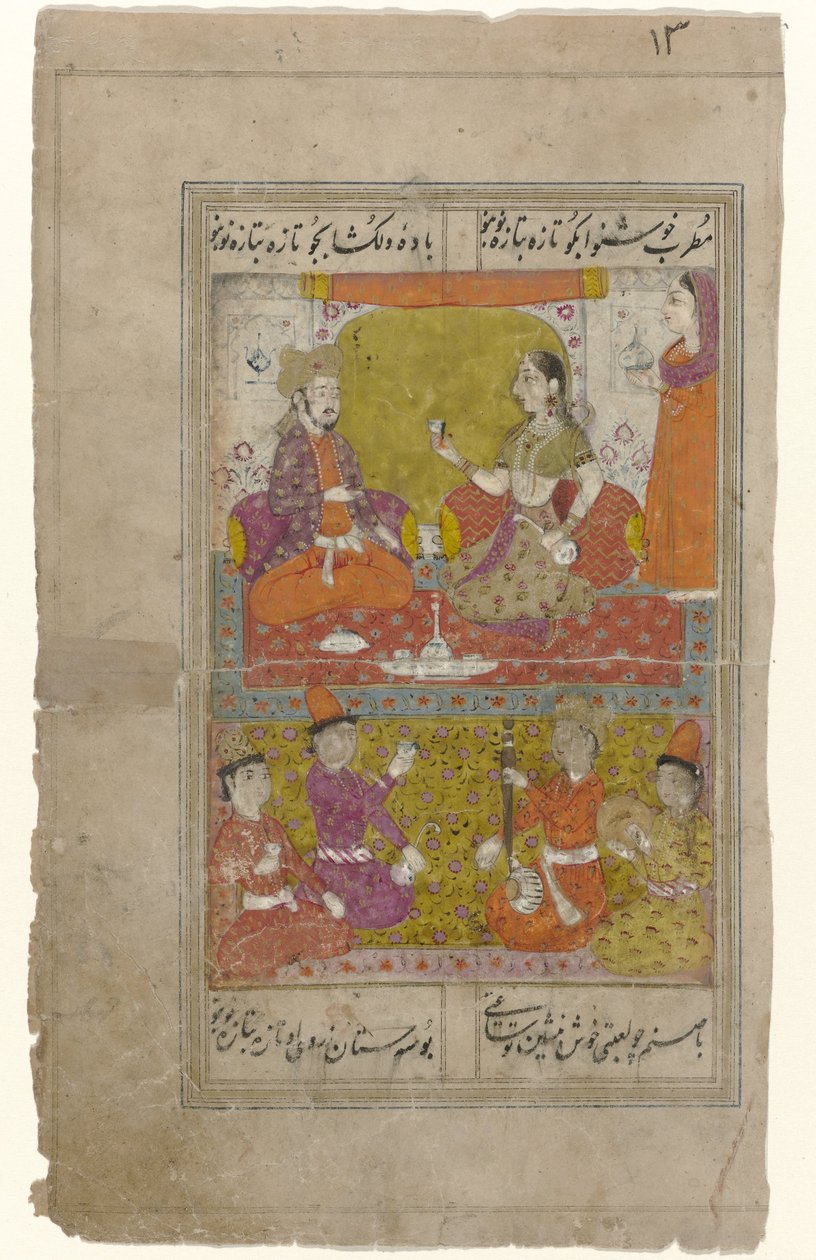 ۱۳
مطرب خوشنوا بکو تازه بتازه نو بنو
باده دلکشا بجو تازه بتازه نو بنو
با صنم چو لعبتی خوش بنشین تو ساعتی
بوسه ستان ز روی او تازه بتازه نو بنو